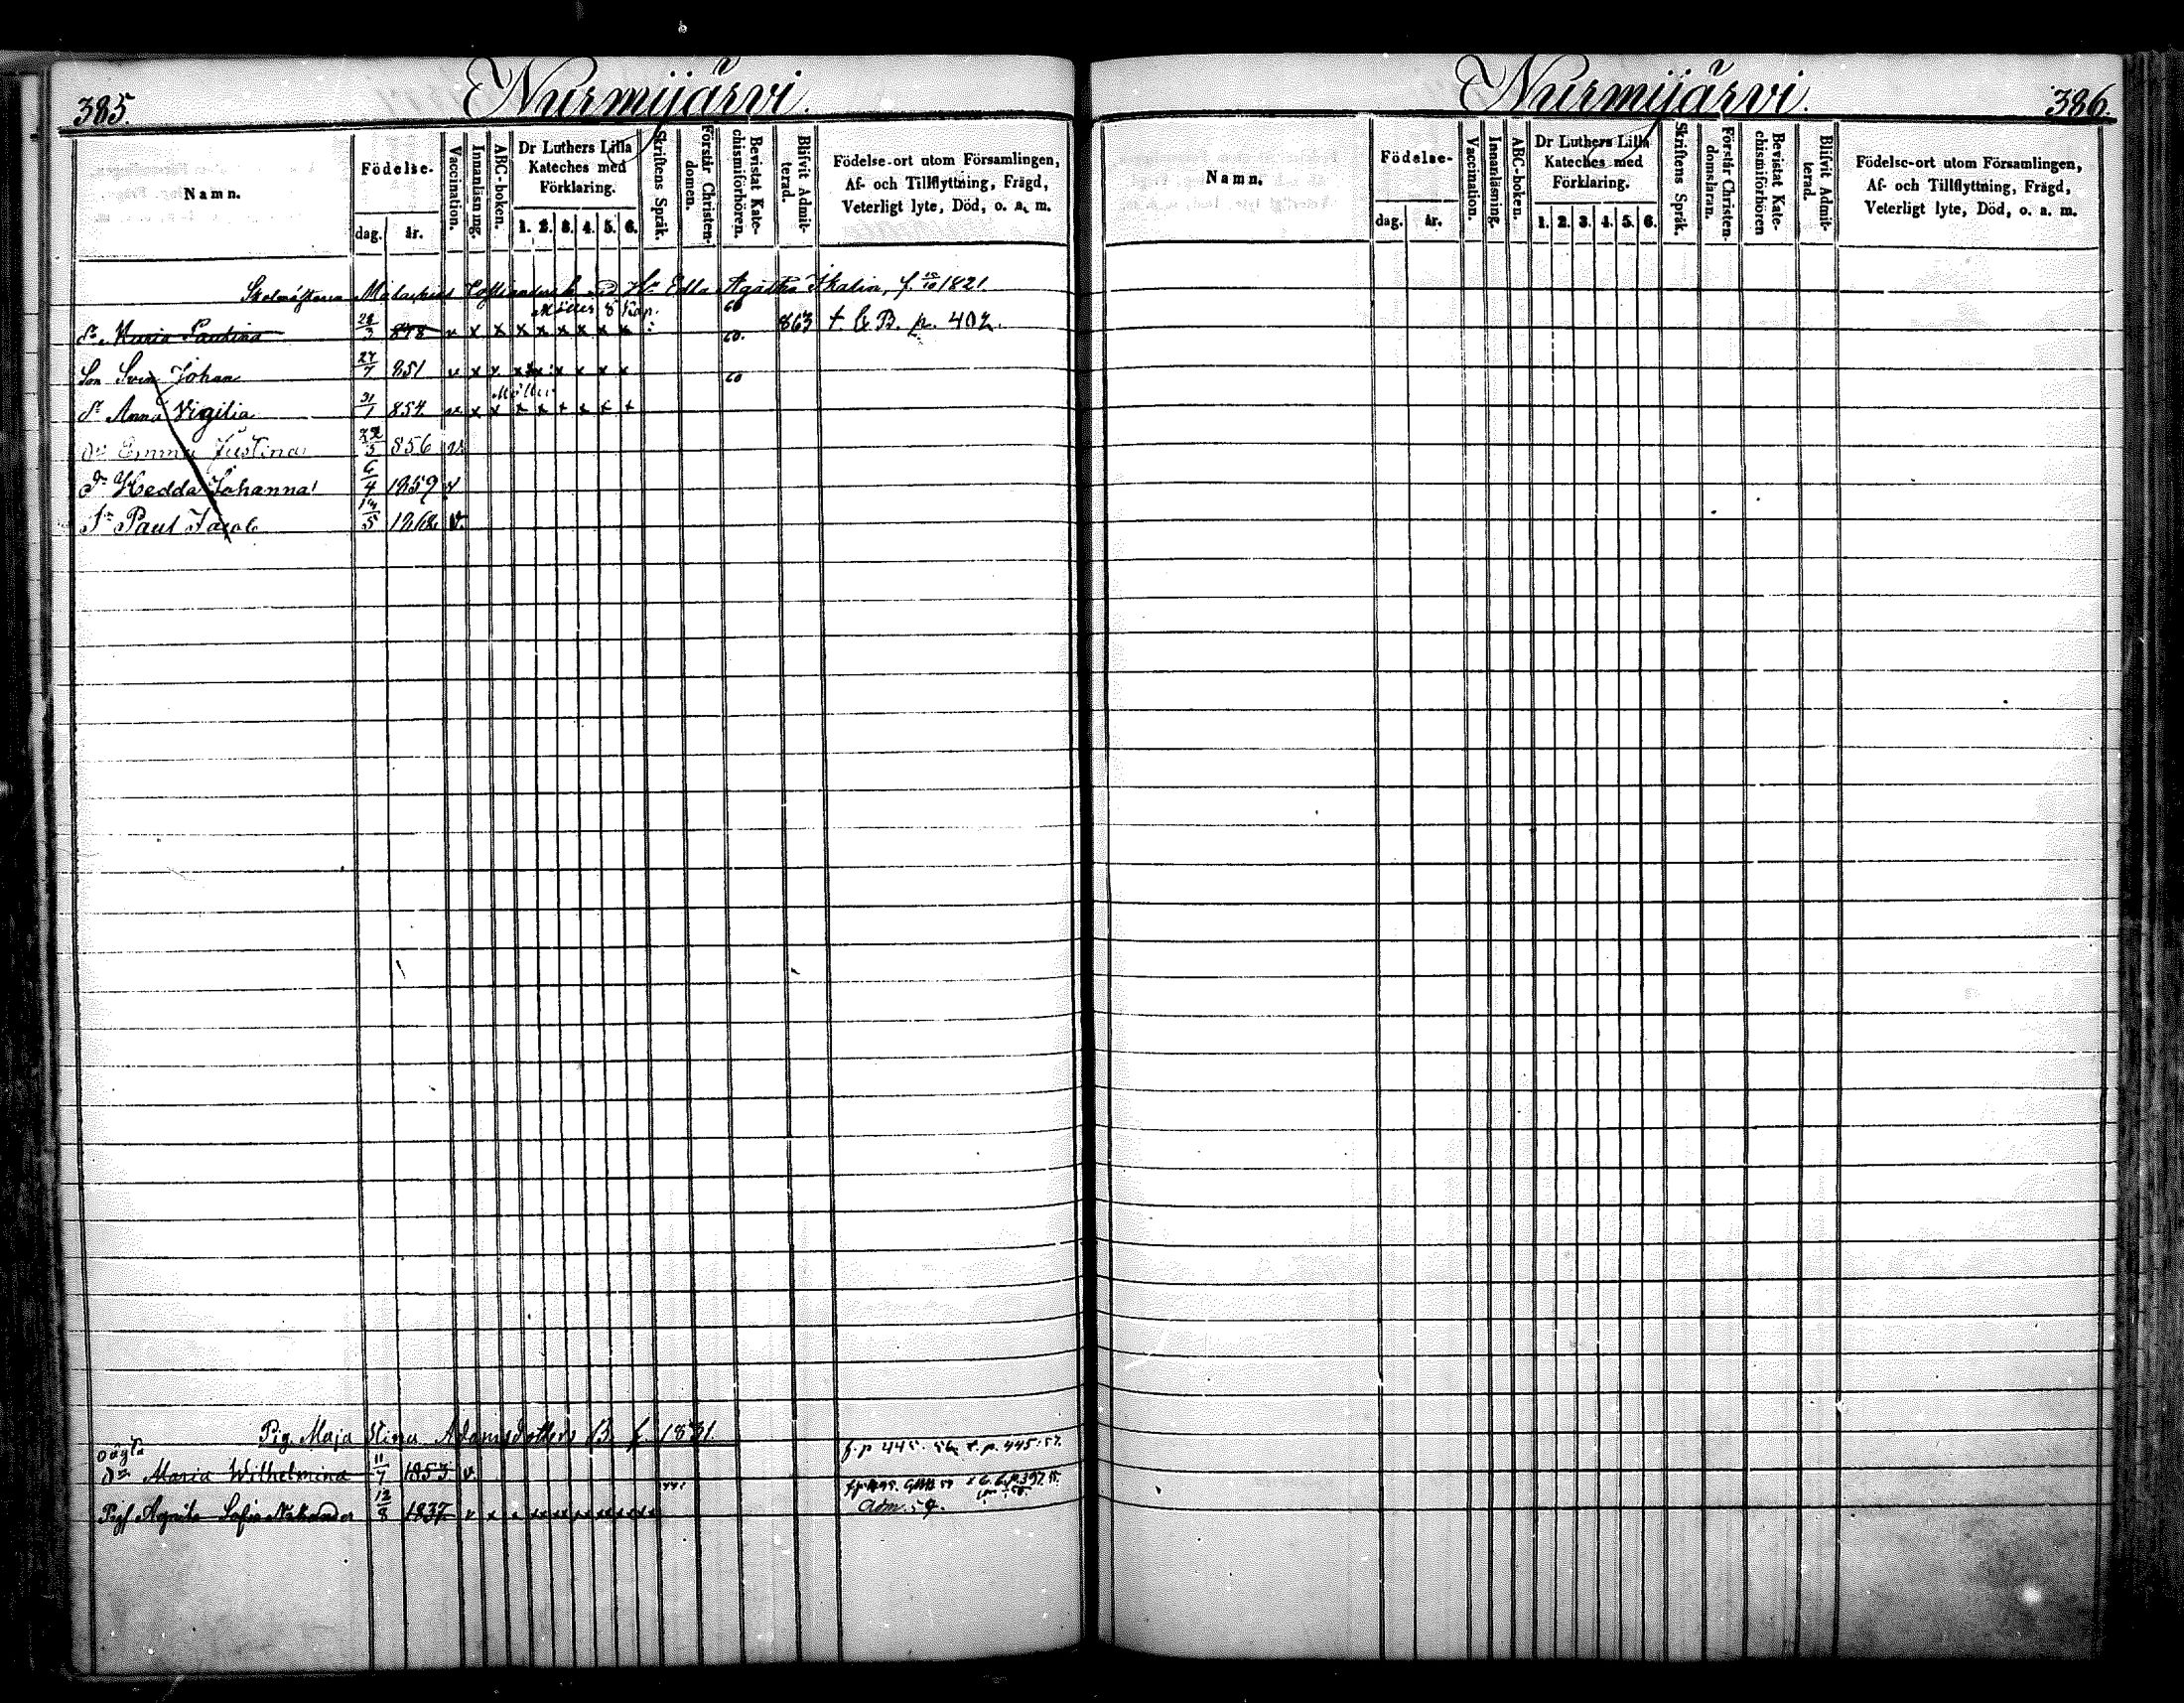 385.
Nurmijärvi.
Namn.
Födelse-
dag. år.
Vaccination.
Innanläsning.
ABC-boken.
Dr Luthers Lilla Kateches med Förklaring.
1. 2. 3. 4. 5. 6.
Skriftens Språk.
Förstår Christen-domen.
Bevistat Kate-chismiförhören.
Blifvit Admit-terad.
Födelse-ort utom Församlingen,
Af- och Tillflyttning, Frägd,
Veterligt lyte, Död, o. a. m.
Edla Agatha f. 1821.
Maria Paulina 28/3 v x x x x x x x x 60. 863 t. C B. p. 402.
Son Sven Johan 27/7 851 v x x x x x x x 60
Möller
Dr Anna Virgilia 31/1 854 v x x x x x x x x
Dr Emma Justina 22/3 856 v.
Dr Hedda Johanna 6/4 1859 v
Sn Paul Jacob 5 v.
Pig. Maja Stina Adamsdotters B. f.
oägta
Dr Maria Wilhelmina 11/7 1853 v. f. p 445. 56, t. p. 445. 57.
Sofia 12/8 1837 v x
Adm. 54.
Nurmijärvi.
386.
Namn.
Födelse-
dag. år.
Vaccination.
Innanläsning.
ABC-boken.
Dr Luthers Lilla Kateches med Förklaring.
1. 2. 3. 4. 5. 6.
Skriftens Språk.
Förstår Christen-domsläran.
Bevistat Kate-chismiförhören
Blifvit Admit-terad.
Födelse-ort utom Församlingen,
Af- och Tillflyttning, Frägd,
Veterligt lyte, Död, o. a. m.